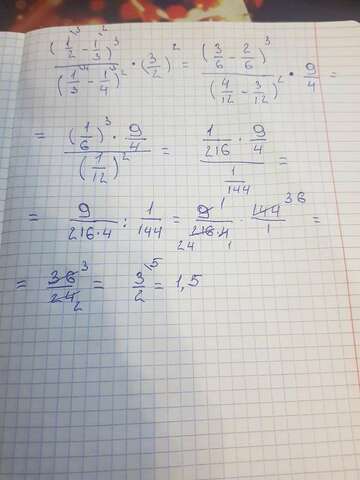 (1/2 - 1/3)³ / (1/3 - 1/4)² · (3/2)² = (3/6 - 2/6)³ / (4/12 - 3/12)² · 9/4 =
= (1/6)³ · 9/4 / (1/12)² = 1/216 · 9/4 / 1/144 =
= 9/216·4 : 1/144 = 9 1/216·4 24 1 · 144 36/1 =
= 36 3/24 2 = 3/2 \5 = 1,5